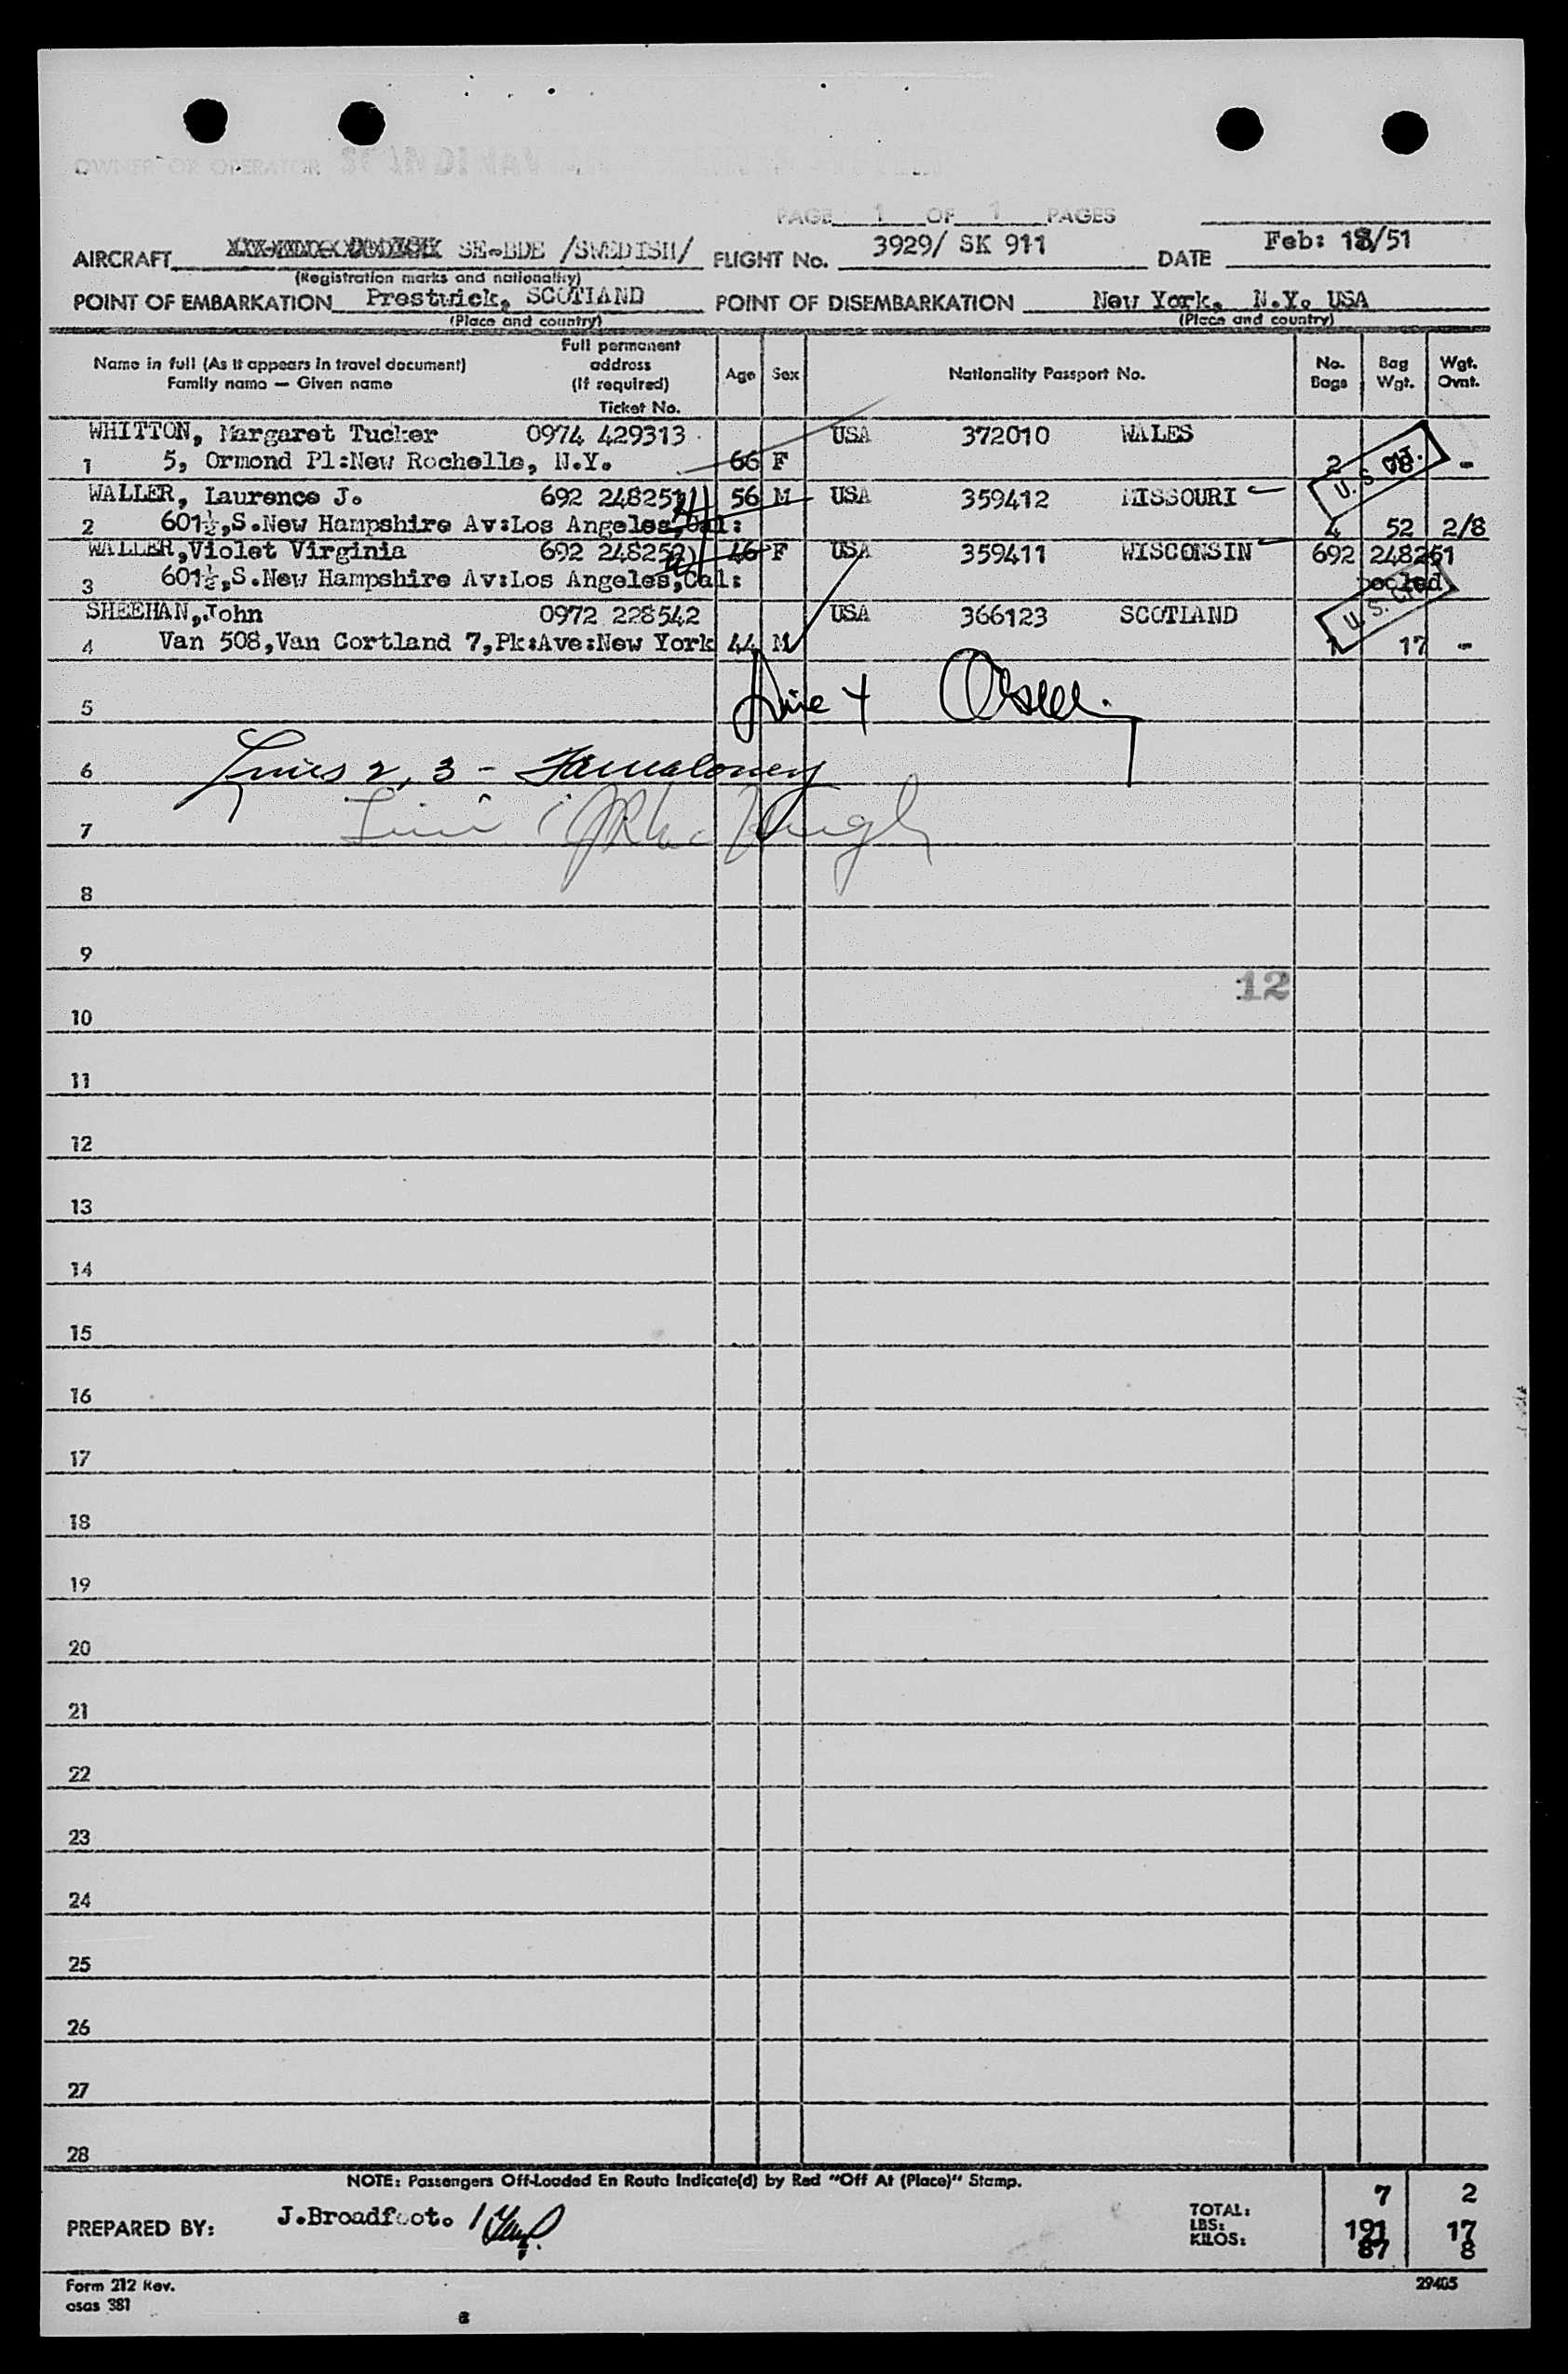 OWNER OR OPERATOR
PAGE 1 OF 1 PAGES
AIRCRAFT SE-BDE /SWEDISH/ FLIGHT No. 3929/ SK 911 DATE Feb: 18/51
(Registration marks and nationality)
POINT OF EMBARKATION Prestwick, SCOTLAND POINT OF DISEMBARKATION New York, N.Y. USA
(Place and country) (Place and country)
Name in full (As it appears in travel document)
Family name — Given name
Full permanent
address
(If required)
Ticket No.
Age Sex Nationality Passport No. No. Bags Bag Wgt. Wgt. Ovnt.
WHITTON, Margaret Tucker 0974 429313 USA 372010 WALES
1 5, Ormond Pl:New Rochelle, N.Y. 66 F 2 18 -
U. S. CIT.
WALLER, Laurence J. 692 248251 56 M USA 359412 MISSOURI
2 601½,S.New Hampshire Av:Los Angeles,Cal: 4 52 2/8
WALLER,Violet Virginia 692 248252 46 F USA 359411 WISCONSIN 692 248251
3 601½,S.New Hampshire Av:Los Angeles,Cal: pooled
U. S. CIT.
SHEEHAN,John 0972 228542 USA 366123 SCOTLAND
4 Van 508,Van Cortland 7,Pk:Ave:New York 44 M 1 17 -
5 Line 4
6 Lines 2, 3 -
7 Line 1
8
9
12
10
11
12
13
14
15
16
17
18
19
20
21
22
23
24
25
26
27
28
NOTE: Passengers Off-Loaded En Route Indicate(d) by Red "Off At (Place)" Stamp.
PREPARED BY: J.Broadfoot.
TOTAL: 7 2
LBS: 191 17
KILOS: 87 8
Form 212 Rev. 29405
osas 381